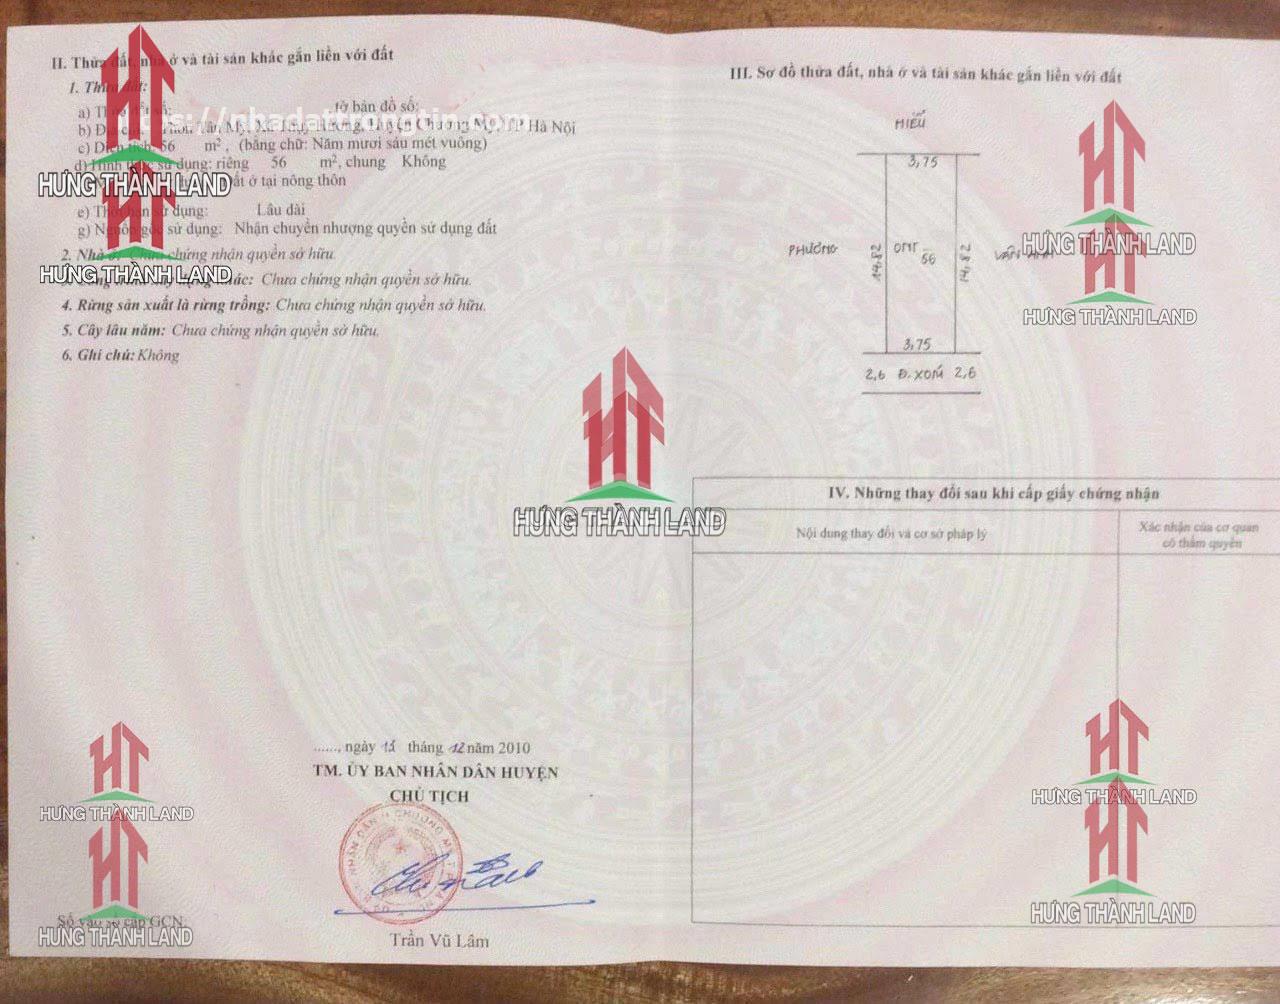 II. Thửa đất, nhà ở và tài sản khác gắn liền với đất
1. Thửa đất:
a) Thửa đất số: tờ bản đồ số:
https://nhadattrungtin.com
b) Địa chỉ: Thôn Tân Mỹ, Xã Thụy Hương, Huyện Chương Mỹ, TP Hà Nội
c) Diện tích: 56 m², (bằng chữ: Năm mươi sáu mét vuông)
d) Hình thức sử dụng: riêng 56 m², chung Không
đất ở tại nông thôn
e) Thời hạn sử dụng: Lâu dài
g) Nguồn gốc sử dụng: Nhận chuyển nhượng quyền sử dụng đất
2. Nhà ở: Chưa chứng nhận quyền sở hữu.
3. Công trình xây dựng khác: Chưa chứng nhận quyền sở hữu.
4. Rừng sản xuất là rừng trồng: Chưa chứng nhận quyền sở hữu.
5. Cây lâu năm: Chưa chứng nhận quyền sở hữu.
6. Ghi chú: Không
......, ngày 15 tháng 12 năm 2010
TM. ỦY BAN NHÂN DÂN HUYỆN
CHỦ TỊCH
Trần Vũ Lâm
Số vào sổ cấp GCN:
III. Sơ đồ thửa đất, nhà ở và tài sản khác gắn liền với đất
HIẾU
3,75
PHƯƠNG
14,82
ONT
56
14,82
VÂN
3,75
2,6 Đ. XÓM 2,6
IV. Những thay đổi sau khi cấp giấy chứng nhận
Nội dung thay đổi và cơ sở pháp lý
Xác nhận của cơ quan
có thẩm quyền
HT
HƯNG THÀNH LAND
HT
HƯNG THÀNH LAND
HT
HƯNG THÀNH LAND
HT
HƯNG THÀNH LAND
HT
HƯNG THÀNH LAND
HT
HƯNG THÀNH LAND
HT
HƯNG THÀNH LAND
HT
HƯNG THÀNH LAND
HT
HƯNG THÀNH LAND